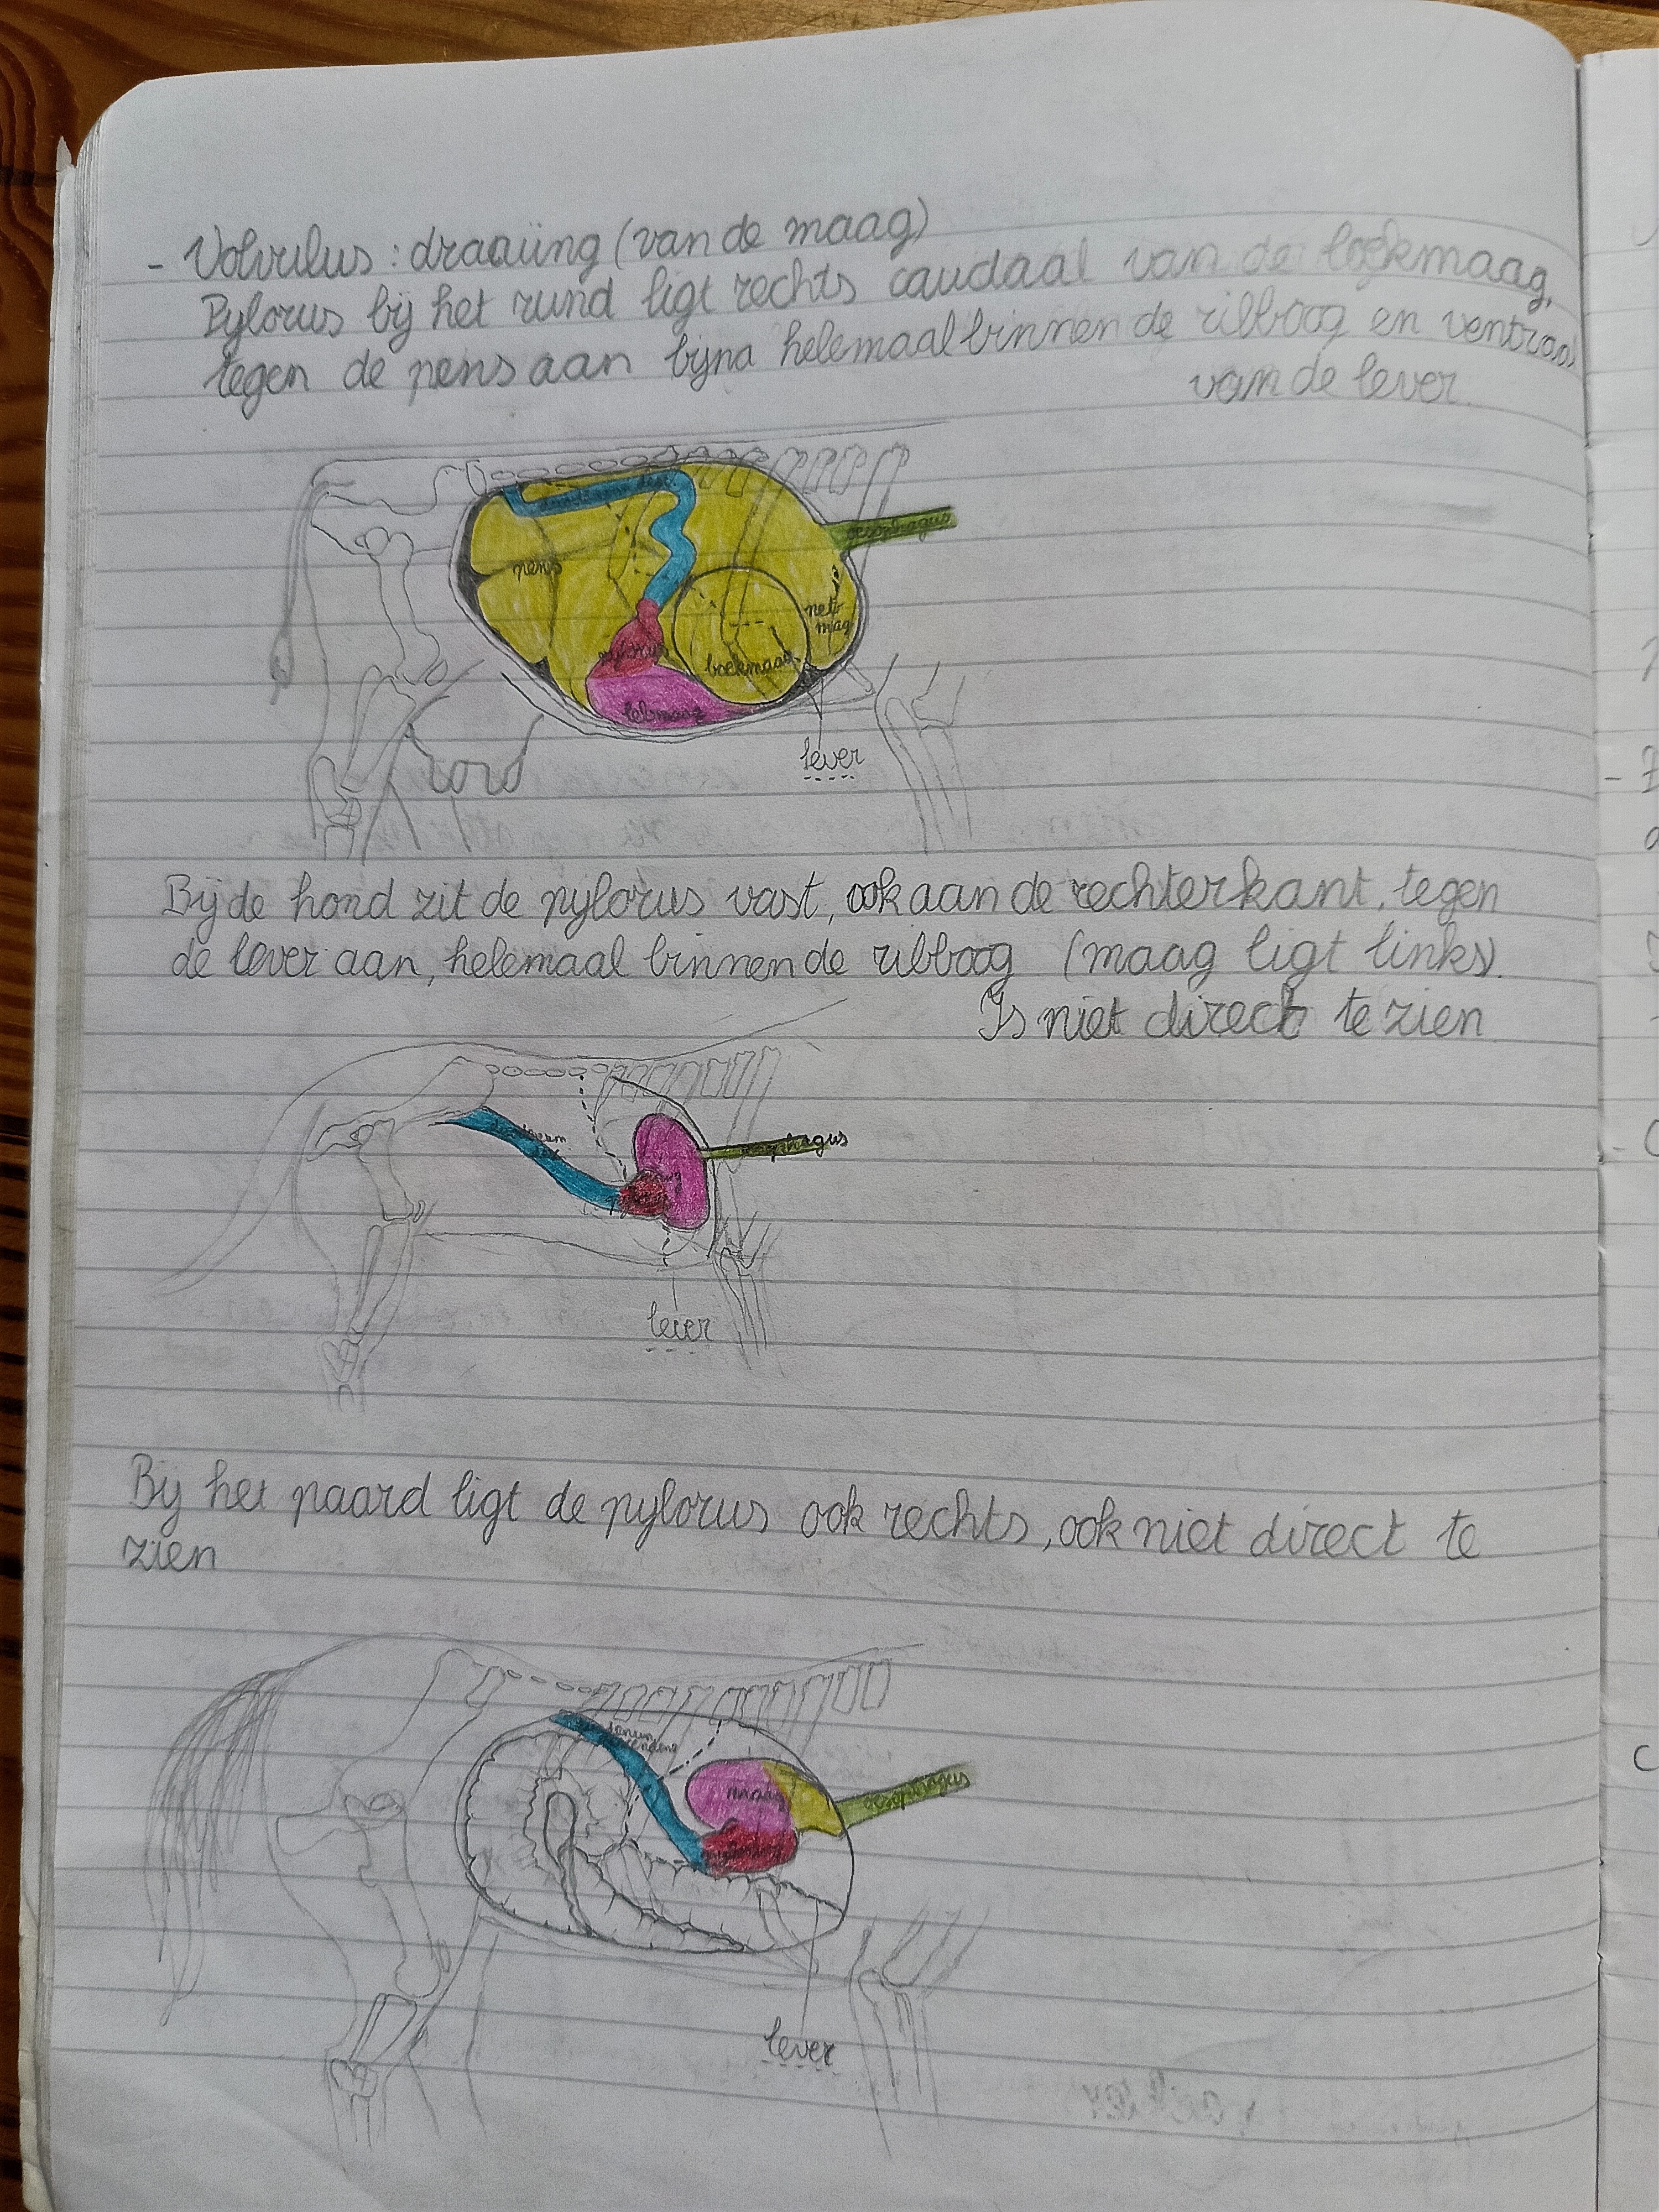 - Volvulus : draaiing (van de maag)
Pylorus bij het rund ligt rechts caudaal van de boekmaag,
tegen de pens aan bijna helemaal binnen de ribboog en ventraal
van de lever.
oesophagus
pens
net-
mag
pylorus
boekmaag
lebmaag
lever
Bij de hond zit de pylorus vast, ook aan de rechterkant, tegen
de lever aan, helemaal binnen de ribboog (maag ligt links).
Is niet direct te zien
oesophagus
pylorus
lever
Bij het paard ligt de pylorus ook rechts, ook niet direct te
zien
maag
oesophagus
pylorus
lever